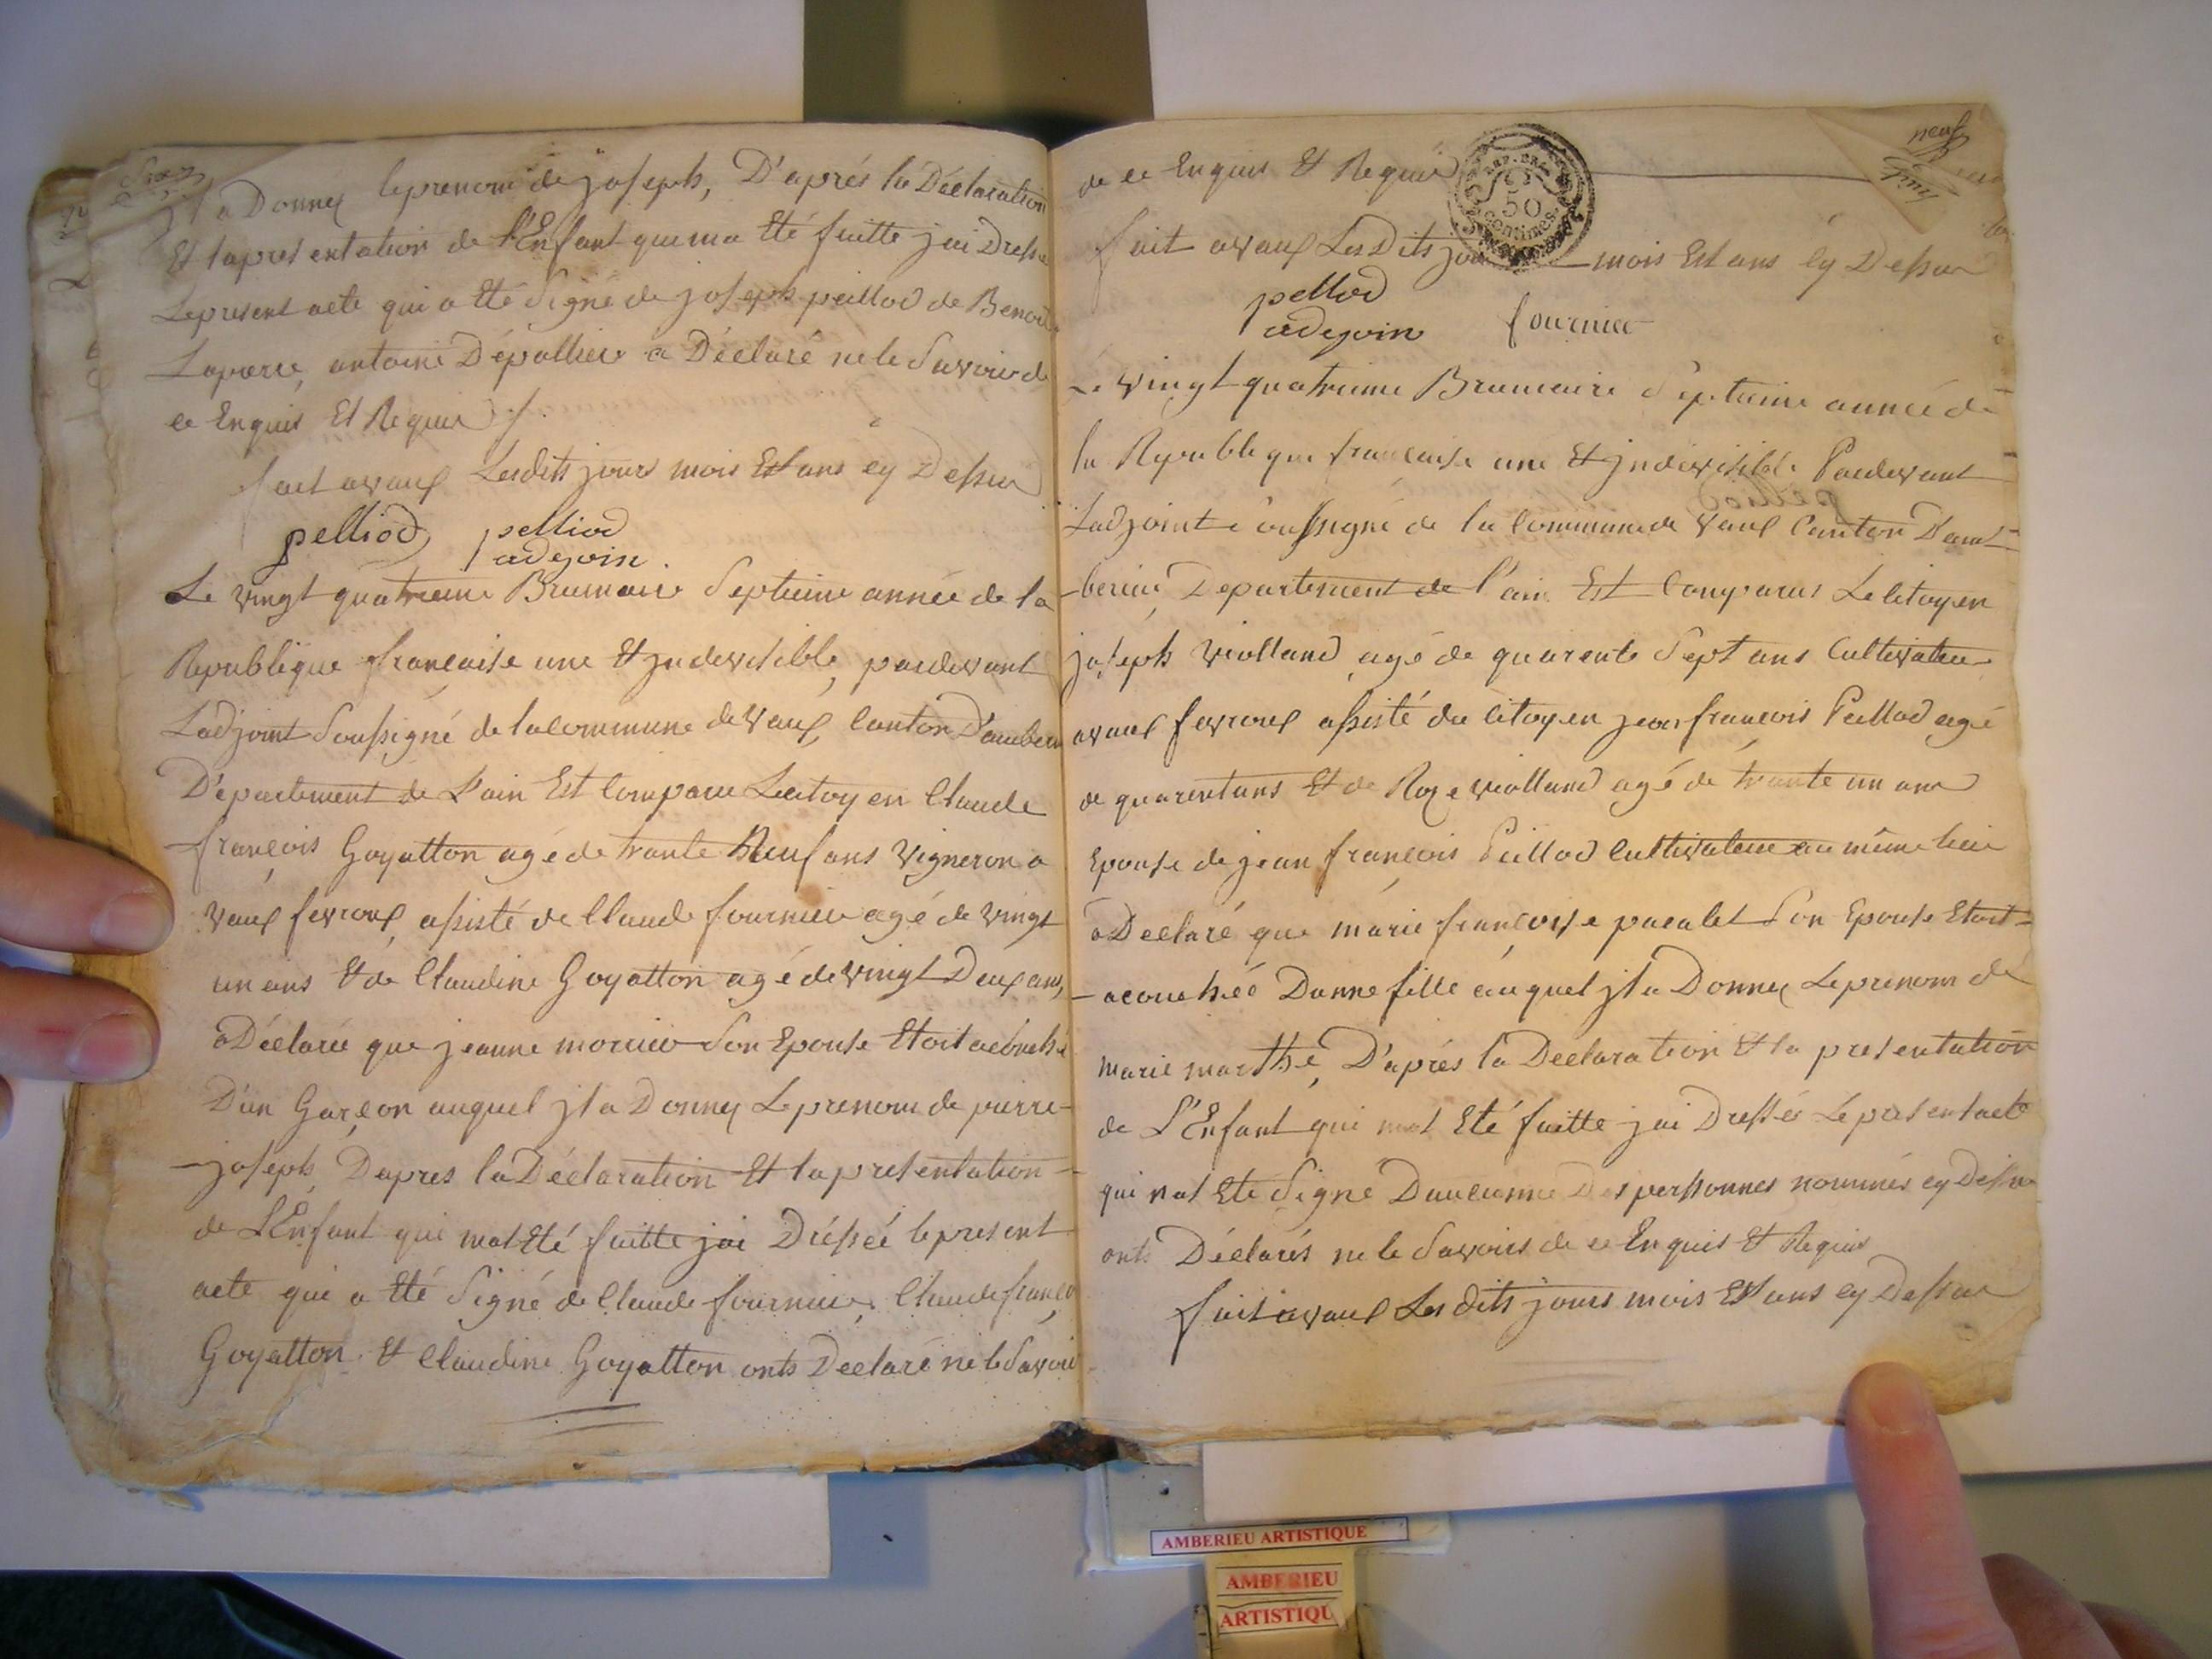 jl a Donnez leprenom de joseph, D'aprés la Déclaration
Et lapresentation de l'Enfant qui ma Eté faitte jai Dressé
Lepresent acte qui a Eté Signé de joseph peillod de Benoit
Laparre, antoine Dépallier a Déclaré ne le Savoir de
ce Enquis Et Requis
fait avaux Lesdits jours mois Et ans cy Dessus
pelliod pelliod
adejoin
Le vingt quatrieme Brumaire Septieme année de la
Republique française une Et jndevisible, pardevant
Ladjoint Soussigné de lacommune de vaux, Canton D'amberi
Département de L'ain Est Comparu Lecitoyen Claude
françois Goyatton agé de trante Neuf ans vigneron a
vaux fevroux, assisté de Claude fournier agé de vingt
un ans Et de Claudine Goyatton agé de vingt Deux ans,
a Déclarée que jeanne morier Son Epouse Etoit acouché
D'un Garçon auquel jl a Donnez Leprenom de pierre-
joseph, Dapres la Déclaration Et lapresentation
de L'Enfant qui mat Eté faitte jai Dréssé lepresent
acte qui a Eté Signé de Claude fournier, Claude françoi
Goyatton Et Claudine Goyatton onts Declaré ne le Savoir
neuf
de ce Enquis Et Requis
50
Centimes
fait avaux Les Dits jour mois Et ans cy Dessus
pelliod fournier
adejoin
Le vingt quatrieme Brumaire Septieme année de
la Republique francaise une Et jndevisible Pardevant
Ladjoint Soussigné de la Commune de vaux Canton Dam-
-berieu, Departement de l'ain Est Comparus Le Citoyen
joseph violland, agé de quarente Sept ans Cultivateur
avaux fevroux assisté du Citoyen jean françois Peillod agé
de quarent ans Et de Roze violland agé de trante un ans
Epouse de jean françois Peillod Cultivateur au même lieu
a Declaré que marie françoise pacalet Son Epouse Etoit
-acouchée Dunne fille auquel jl a Donnez Leprenom de
marie marthe, D'aprés la Declaration Et la presentation
de L'Enfant qui mat Eté faitte jai Dressée Lepresent acte
qui nat Eté Signé Daucunne Des personnes nommés cy Dessus
onts Déclarés ne le Savoirs de ce Enquis Et Requis
fait avaux Les dits jours mois Et ans cy Dessus
AMBERIEU ARTISTIQUE
AMBERIEU
ARTISTIQU